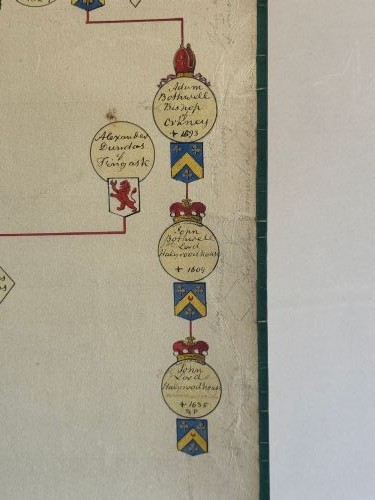 Adam
Bothwell
Bishop
of
Orkney
+ 1593
Alexander
Dundas
of
Fingask
John
Bothwell
Lord
Halyroodhouse
+ 1609
John
Lord
Halyroodhouse
+ 1635
S P